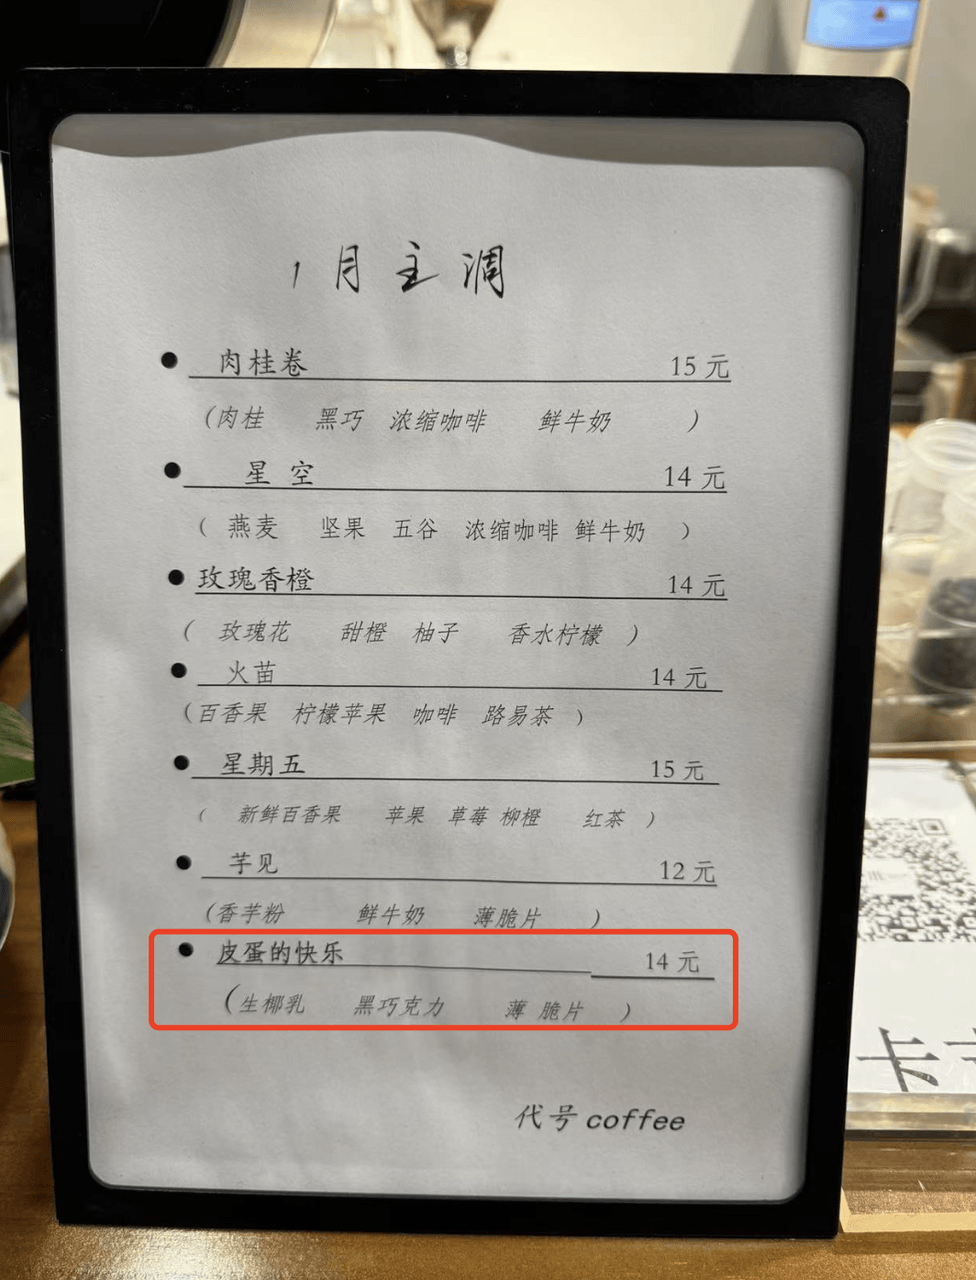 1月主调
肉桂卷 15元
（肉桂 黑巧 浓缩咖啡 鲜牛奶 ）
星 空 14元
（ 燕麦 坚果 五谷 浓缩咖啡 鲜牛奶 ）
玫瑰香橙 14元
（ 玫瑰花 甜橙 柚子 香水柠檬 ）
火苗 14元
（百香果 柠檬苹果 咖啡 路易茶 ）
星期五 15元
（ 新鲜百香果 苹果 草莓 柳橙 红茶 ）
芋见 12元
（香芋粉 鲜牛奶 薄脆片 ）
皮蛋的快乐 14元
（生椰乳 黑巧克力 薄 脆片 ）
代号coffee
卡